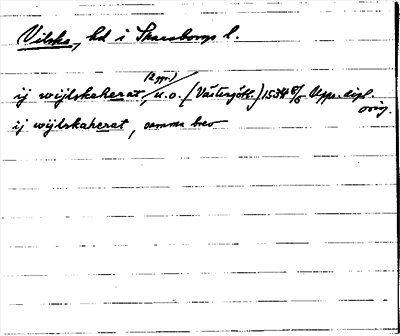 Vilska, hd i Skaraborgs l.
(2 ggr)
ij wijlskaherat, u.o. (Västergötl.) 1534 8/5 Upps. dipl. orig.
ij wijlskaherat, samma brev